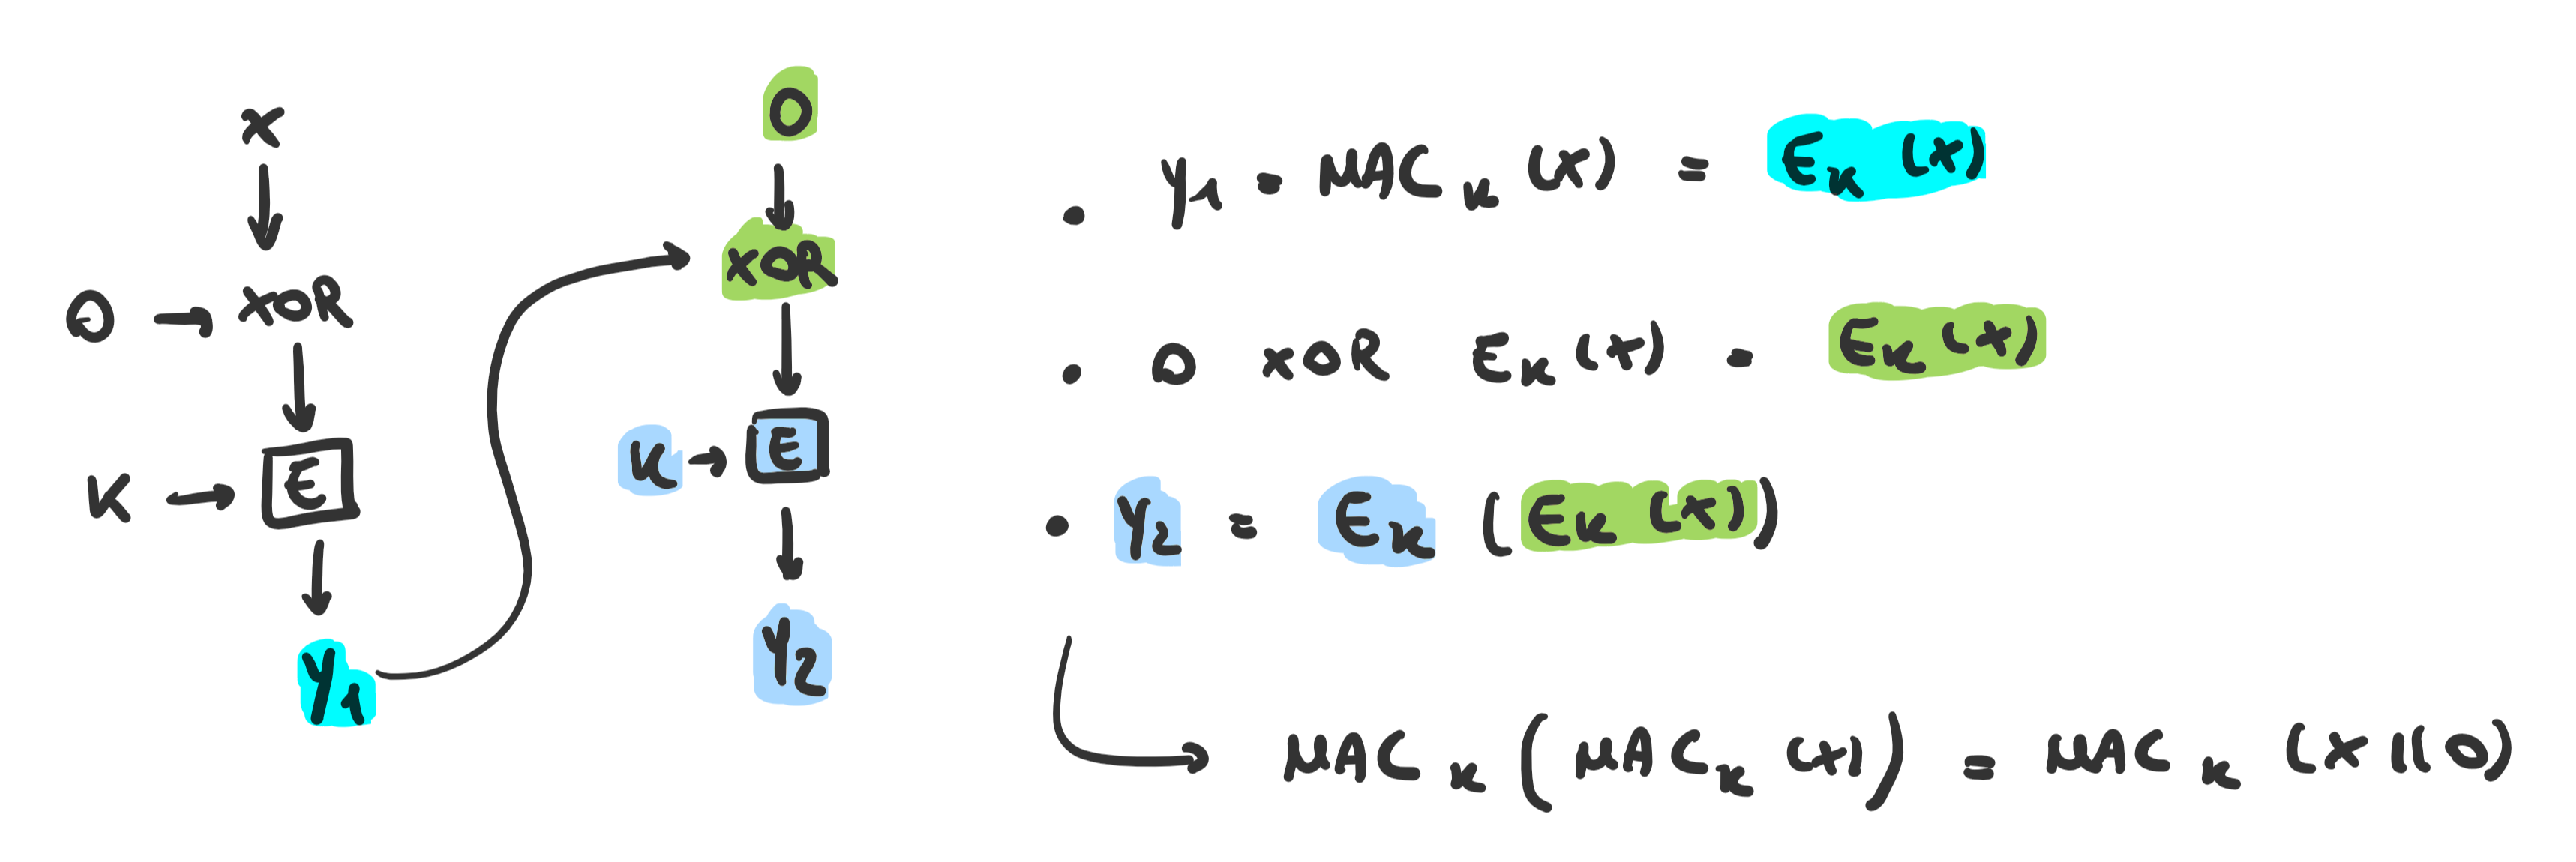 x
0 → XOR
K → E
y1
0
XOR
K → E
y2
• y1 = MAC K (x) = E K (x)
• 0 XOR E K (x) = E K (x)
• y2 = E K (E K (x))
→ MAC K (MAC K (x)) = MAC K (x || 0)